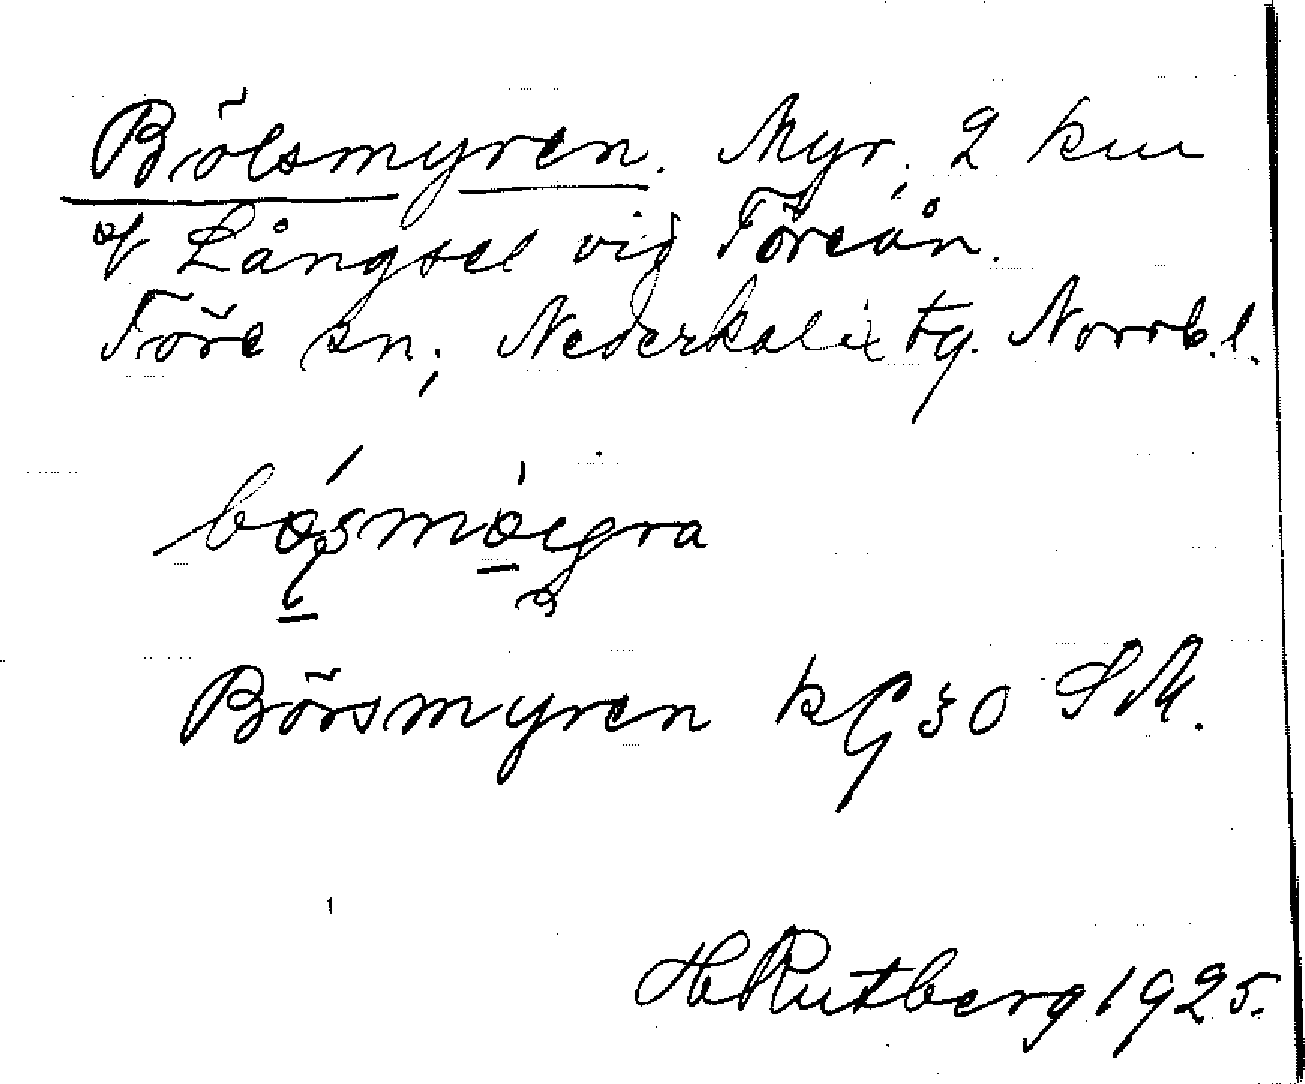 Bölsmyren. Myr, 2 km
of Långsel vid Töreån.
Töre sn, Nederkalix tg. Norrb. l.
Börsmyren kg 30 SM.
H Rutberg 1925.